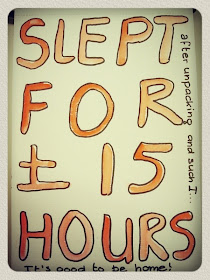 after unpacking and such I...
SLEPT
FOR
± 15
HOURS
It's good to be home!